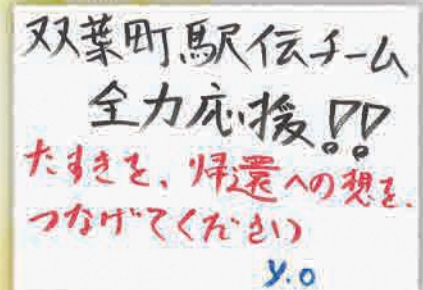 双葉町駅伝チーム
全力応援!!
たすきを、帰還への想を、
つなげてください
y.o